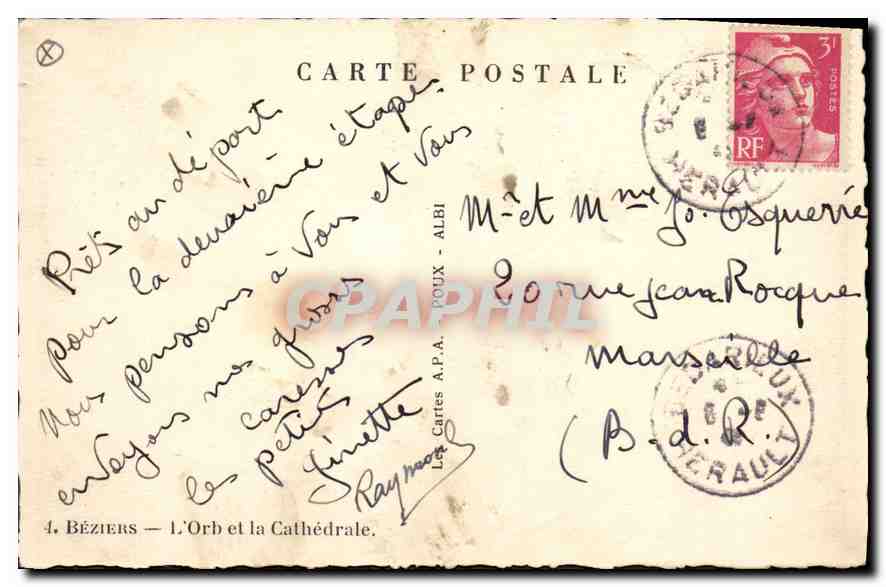 CARTE POSTALE
3F
POSTES
RF
BEDARIEUX
HERAULT
Prêts au départ
pour la deuxième étape
Nous pensons à Vous et Vous
envoyons nos grosses
caresses
les petits
Ginette
Raymond
Les Cartes A.P.A. - POUX - ALBI
Mr et Mme Jo. Esquerré
20 rue Jean Rocque
Marseille
(B.d.R.)
BEDARIEUX
HERAULT
CPAPHIL
4. BÉZIERS — L'Orb et la Cathédrale.